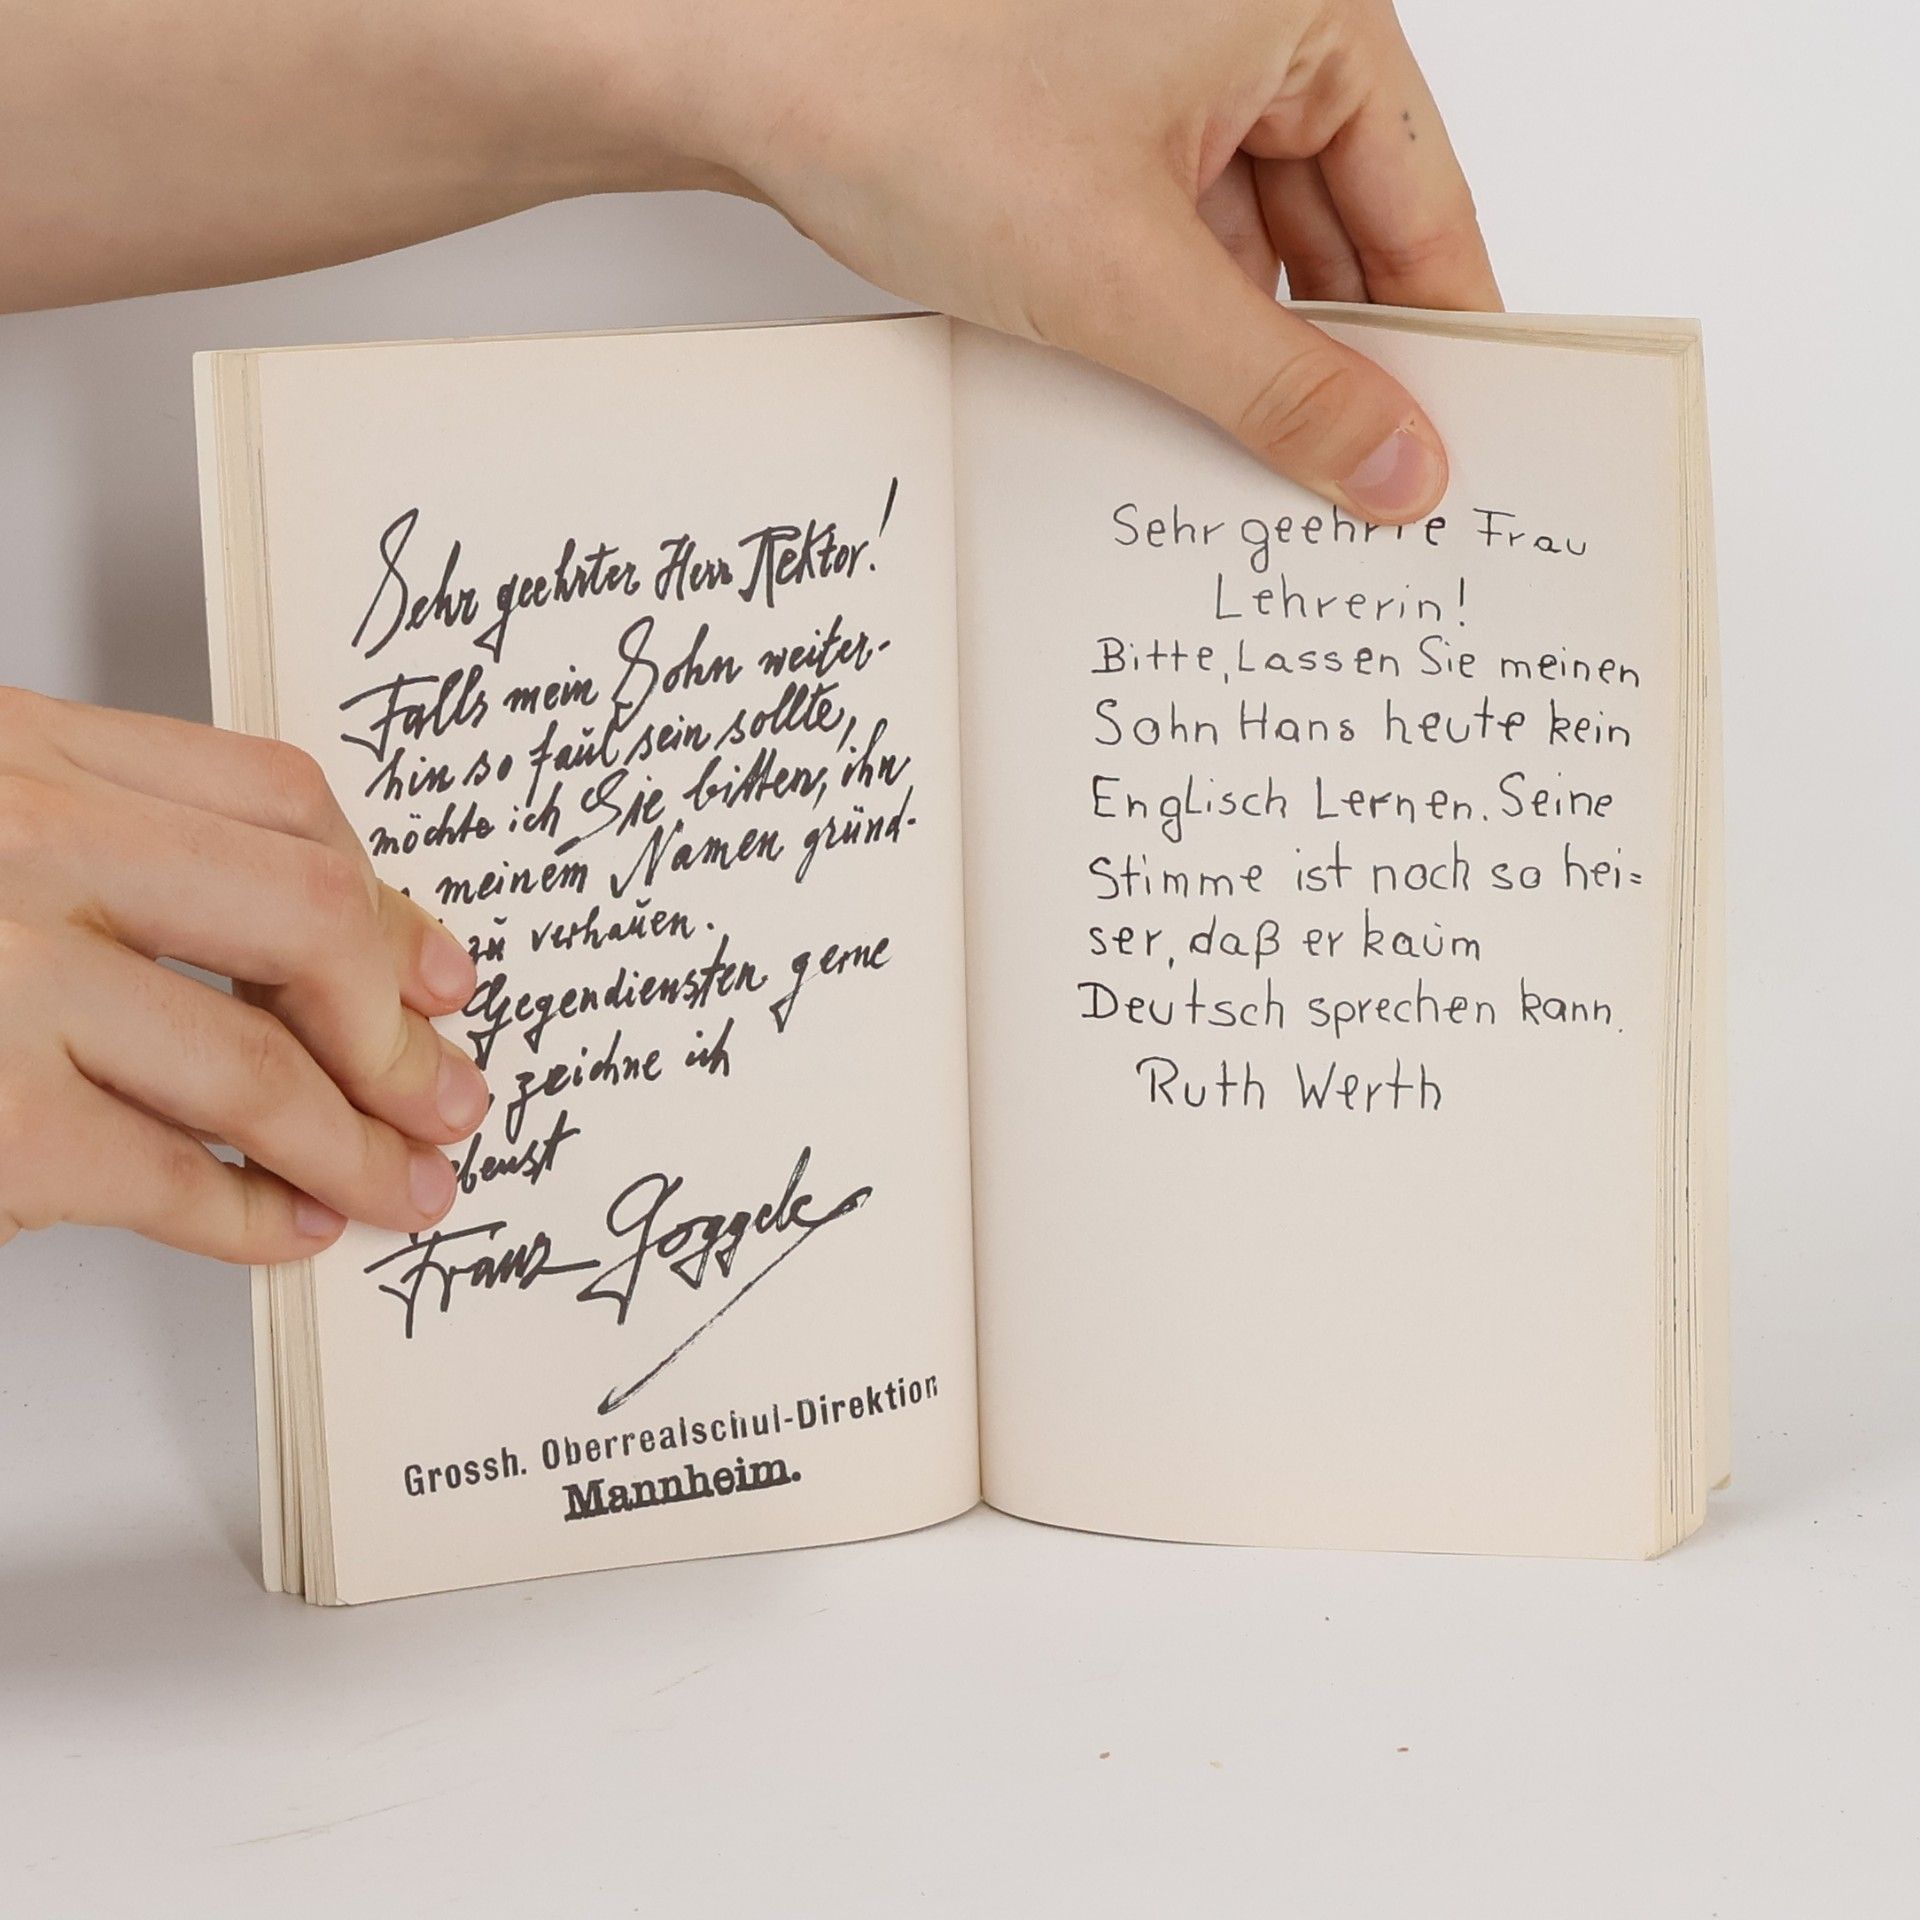 Sehr geehrter Herr Rektor!
Falls mein Sohn weiter-
hin so faul sein sollte,
möchte ich Sie bitten, ihn
meinem Namen gründ-
zu verhauen.
Gegendiensten gerne
zeichne ich
Franz Goggele
Grossh. Oberrealschul-Direktion
Mannheim.
Sehr geehrte Frau
Lehrerin!
Bitte, Lassen Sie meinen
Sohn Hans heute kein
Englisch Lernen. Seine
Stimme ist noch so hei=
ser, daß er kaum
Deutsch sprechen kann.
Ruth Werth